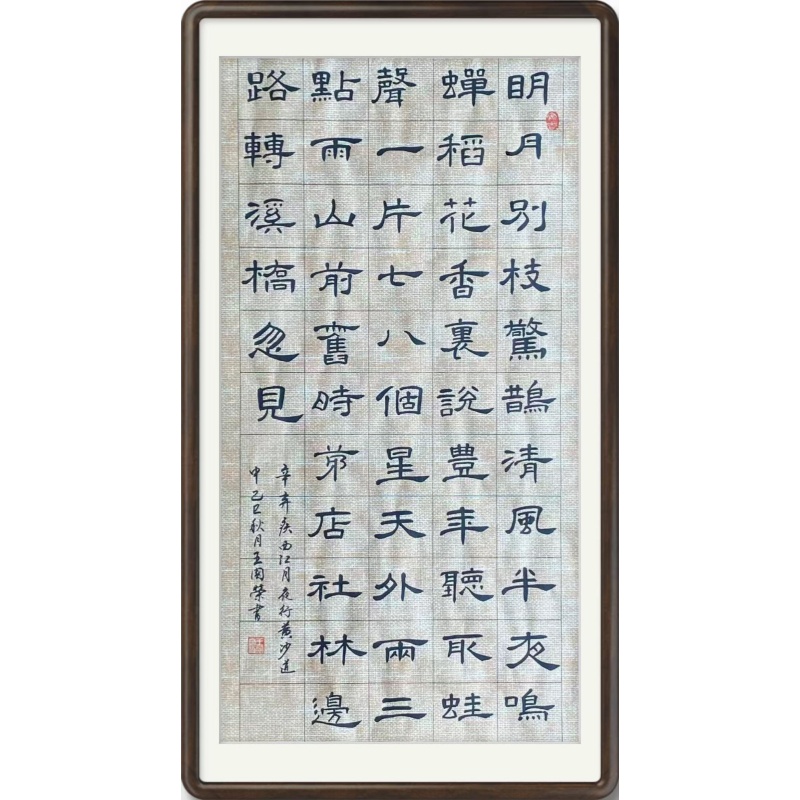 明月別枝驚鵲清風半夜鳴
蟬稻花香裏說豊年聽取蛙
聲一片七八個星天外兩三
點雨山前舊時茅店社林邊
路轉溪橋忽見
辛弃疾西江月夜行黄沙道
中乙巳秋月王国榮書